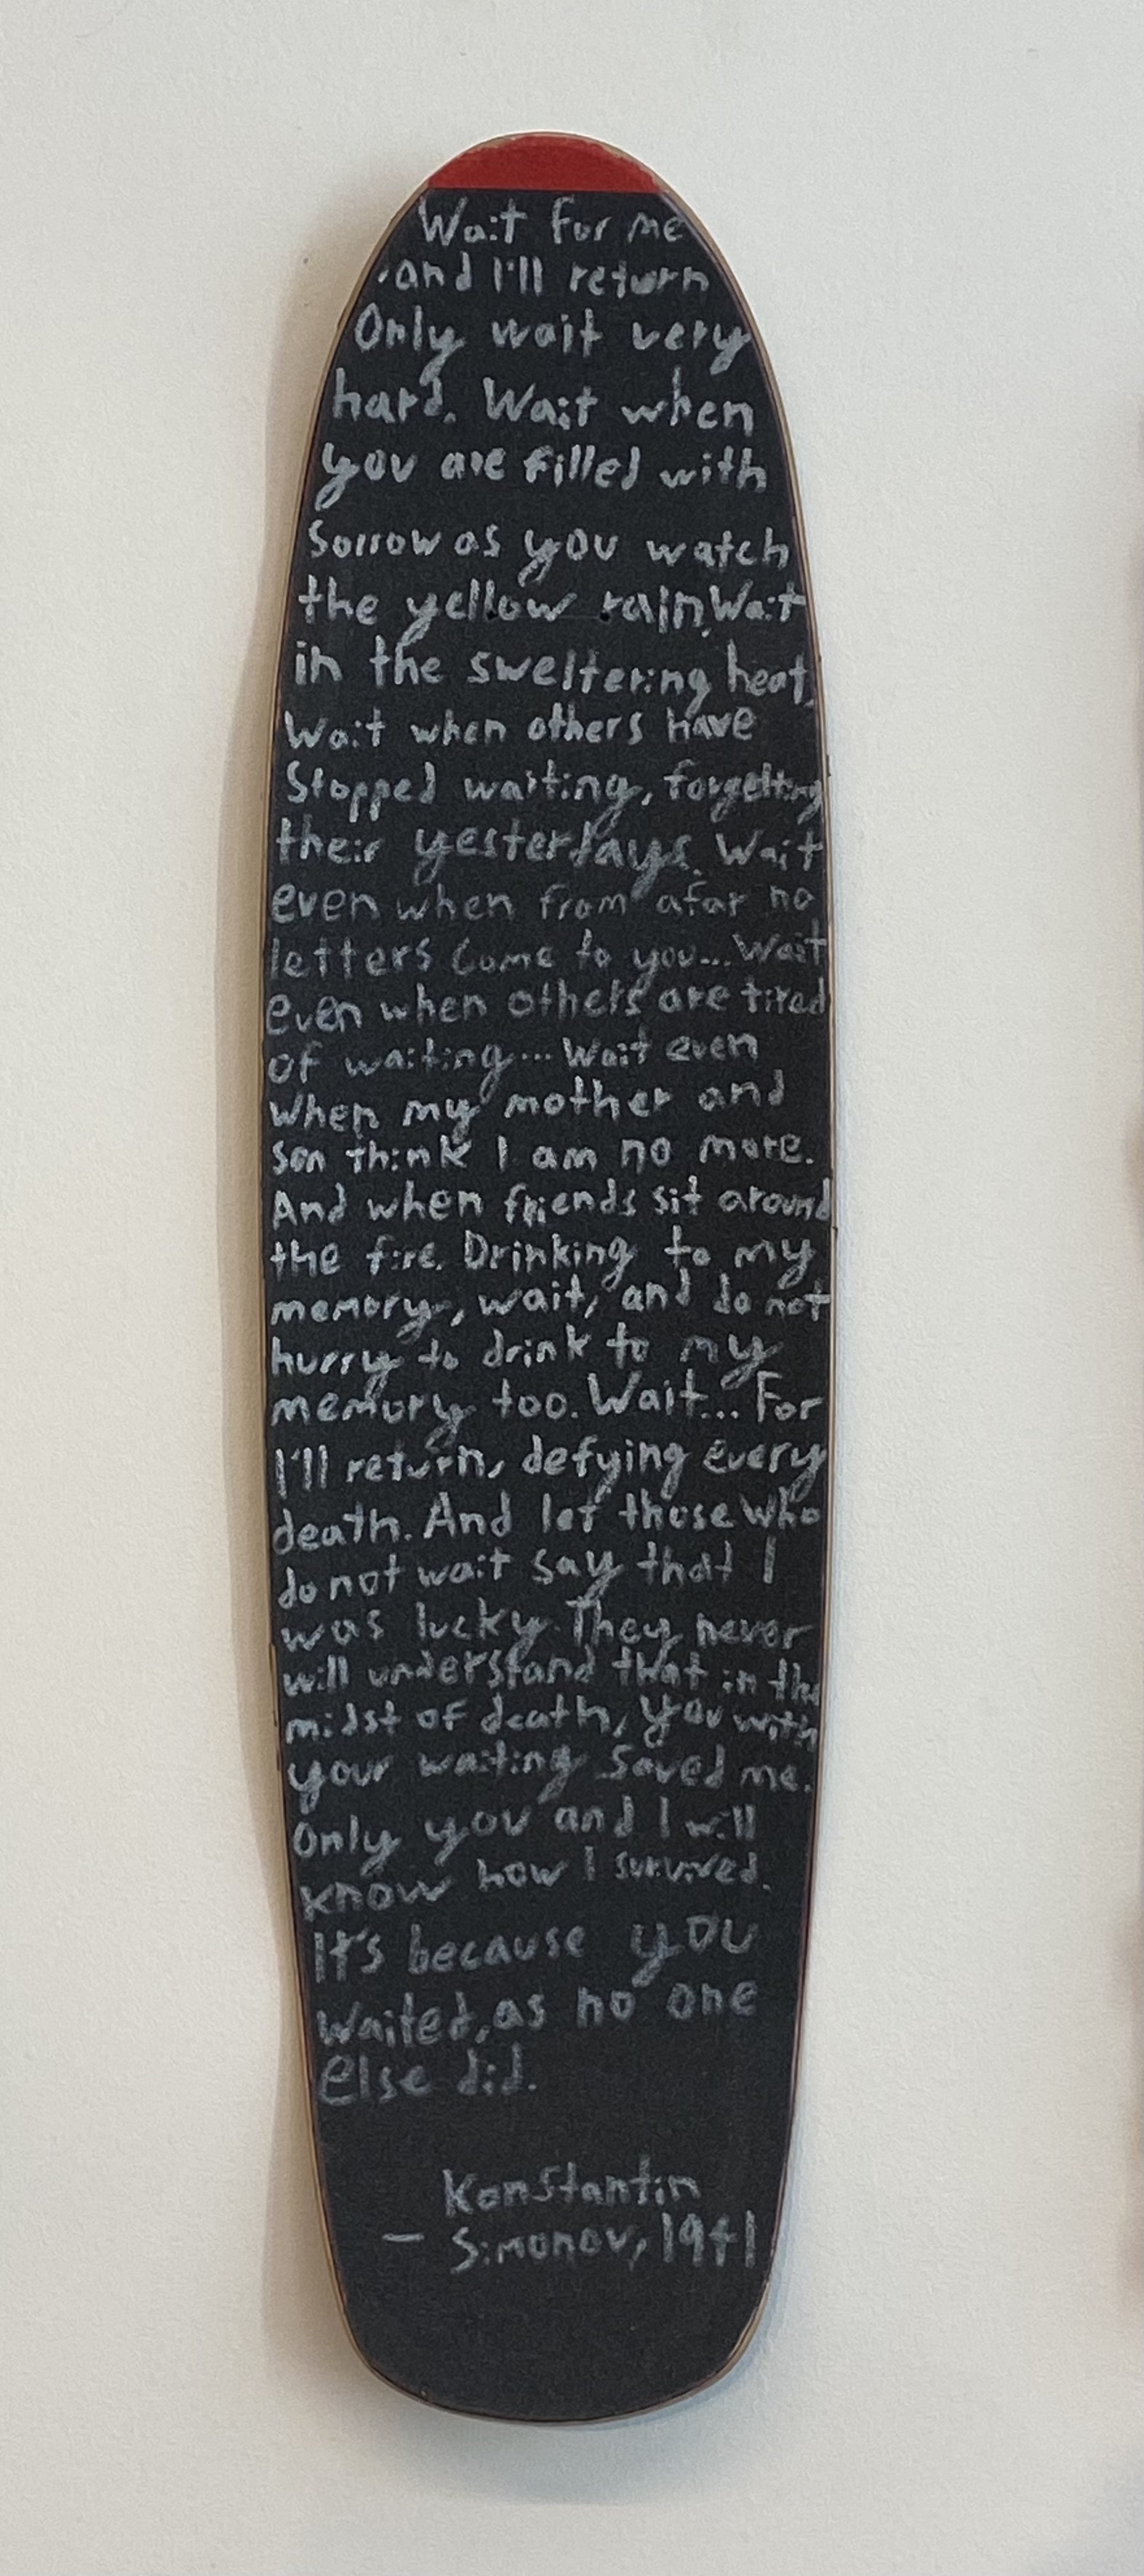 Wait for me
and I'll return
Only wait very
hard. Wait when
you are filled with
Sorrow as you watch
the yellow rain. Wait
in the sweltering heat.
Wait when others have
Stopped waiting, forgetting
their yesterdays. Wait
even when from afar no
letters come to you... Wait
even when others are tired
of waiting... Wait even
when my mother and
son think I am no more.
And when friends sit around
the fire. Drinking to my
memory, wait, and do not
hurry to drink to my
memory too. Wait... For
I'll return, defying every
death. And let those who
do not wait say that I
was lucky. They never
will understand that in the
midst of death, you with
your waiting saved me.
Only you and I will
know how I survived.
It's because you
waited, as no one
else did.
Konstantin
— Simonov, 1941